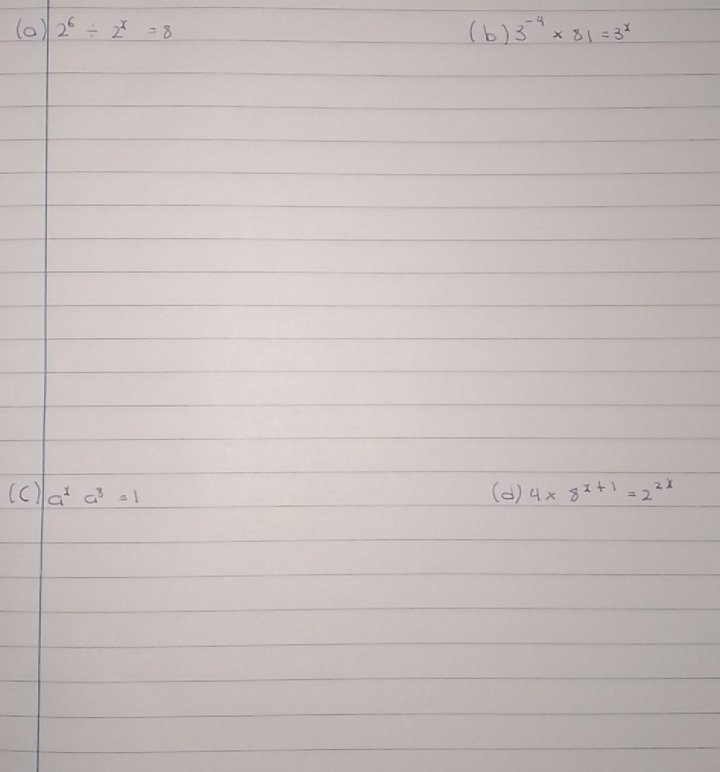 (a) 2⁶ ÷ 2ˣ = 8
(b) 3⁻⁴ × 81 = 3ˣ
(c) aˣ a⁸ = 1
(d) 4 × 8ˣ⁺¹ = 2²ˣ